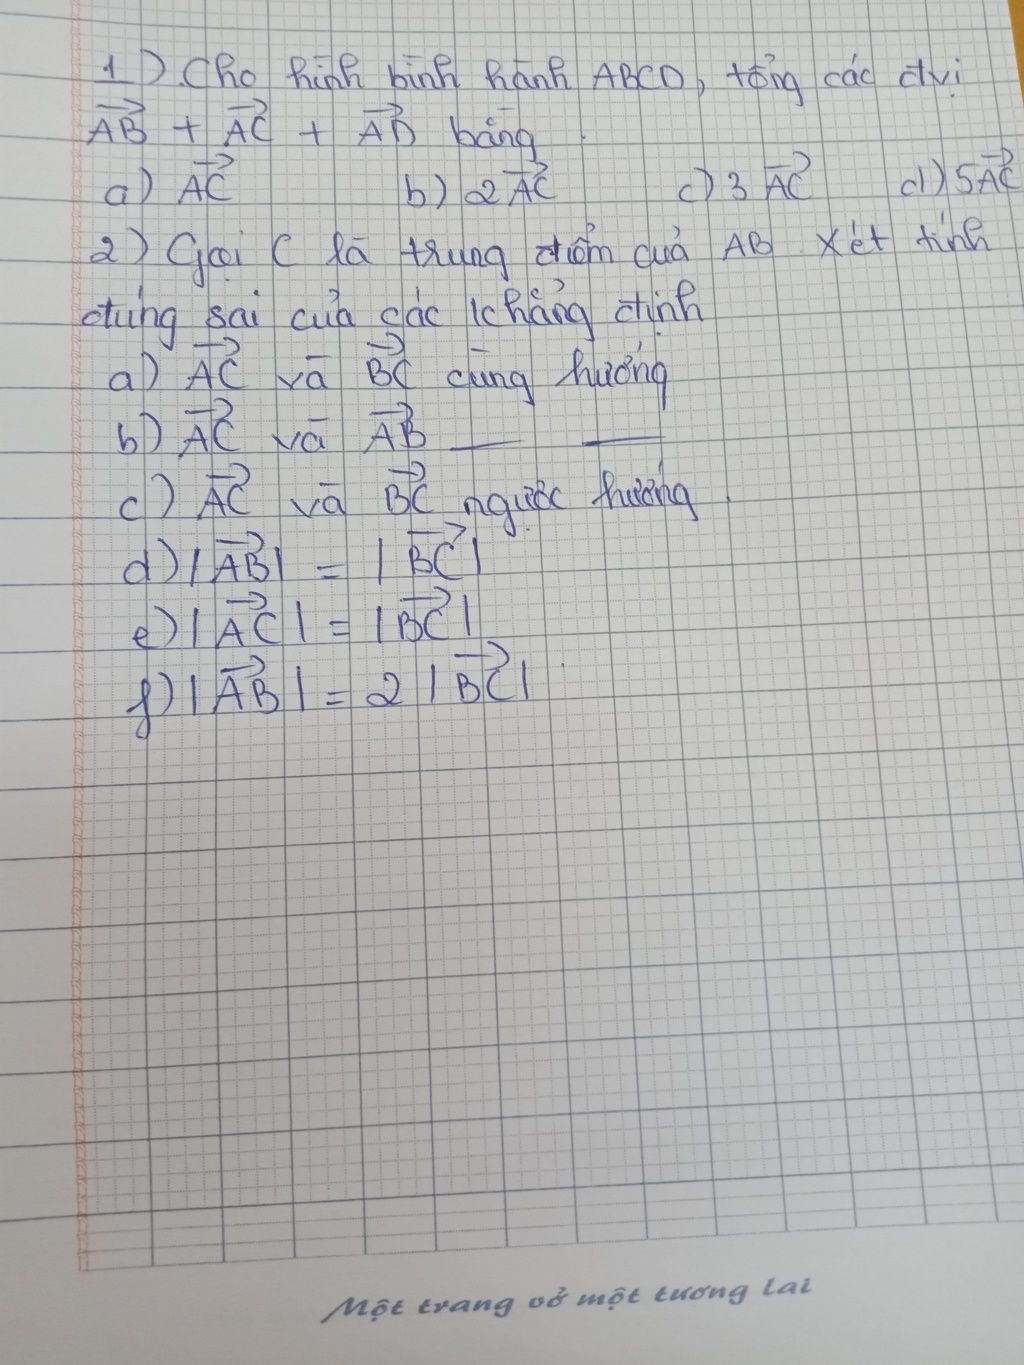 1) Cho hình bình hành ABCD, tổng các đvị
AB + AC + AD bằng
a) AC b) 2AC c) 3 AC d) 5AC
2) Gọi C là trung điểm của AB Xét tính
đúng sai của các khẳng định
a) AC và BC cùng hướng
b) AC và AB — —
c) AC và BC ngược hướng.
d) |AB| = |BC|
e) |AC| = |BC|
f) |AB| = 2 |BC|
Một trang vở một tương lai